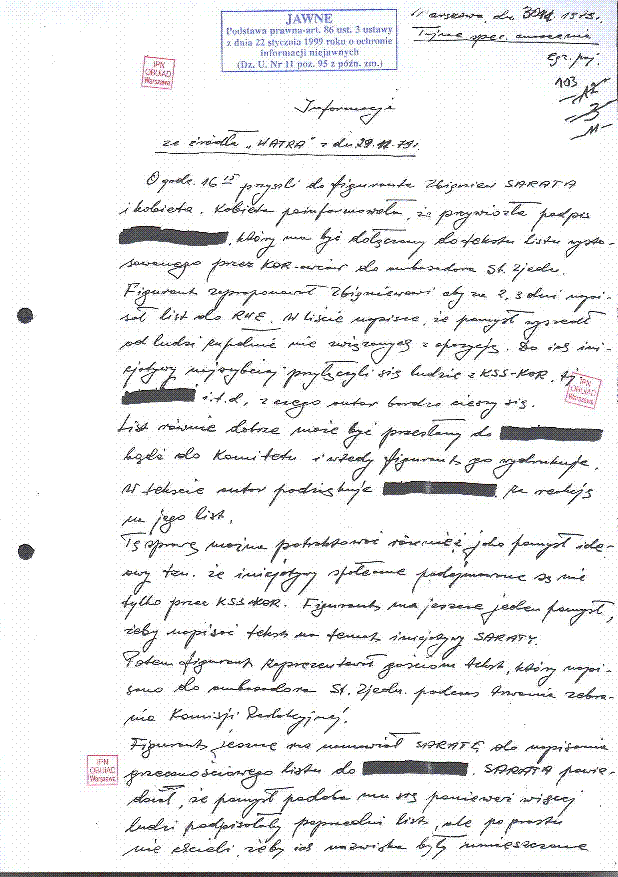 JAWNE
Podstawa prawna-art. 86 ust. 3 ustawy
z dnia 22 stycznia 1999 roku o ochronie
informacji niejawnych
(Dz. U. Nr 11 poz. 95 z późn. zm.)
Warszawa, dn. 1979r.
Tajne spec. znaczenia
Egz. poj.
103
IPN
OBUiAD
Warszawa
Informacja
ze źródła „WATRA" z dn 29.12.79r.
O godz. 16 15 przyszli do figuranta Zbigniew SARATA
i kobieta. Kobieta poinformowała, że przywiozła podpis
, który ma być dołączony do tekstu listu wysto-
sowanego przez KOR-owców do ambasadora St. Zjedn.
Figurant zaproponował Zbigniewowi aby za 2, 3 dni napi-
sał list do RWE. W liście napisze, że pomysł wyszedł
od ludzi zupełnie nie związanych z opozycją. Do ich ini-
cjatywy najszybciej przyłączyli się ludzie z KSS-KOR, tj
i.t.d, z czego autor bardzo cieszy się.
IPN
OBUiAD
Warszawa
List równie dobrze może być przesłany do
bądź do Komitetu i wtedy figurant go wydrukuje.
W tekście autor podziękuje za reakcję
na jego list.
Tę sprawę można potraktować również jako pomysł ide-
owy tzn. że inicjatywy społeczne podejmowane są nie
tylko przez KSS-KOR. Figurant ma jeszcze jeden pomysł,
żeby napisać tekst na temat inicjatywy SARATY.
Potem figurant zaprezentował gościom tekst, który napi-
sano do ambasadora St. Zjedn. podczas trwania zebra-
nia Komisji Redakcyjnej.
Figurant jeszcze raz namawiał SARATĘ do napisania
IPN
OBUiAD
Warszawa
grzecznościowego listu do . SARATA powie-
dział, że pomysł podoba mu się ponieważ więcej
ludzi podpisałoby poprzedni list, ale po prostu
nie chcieli, żeby ich nazwiska były umieszczone